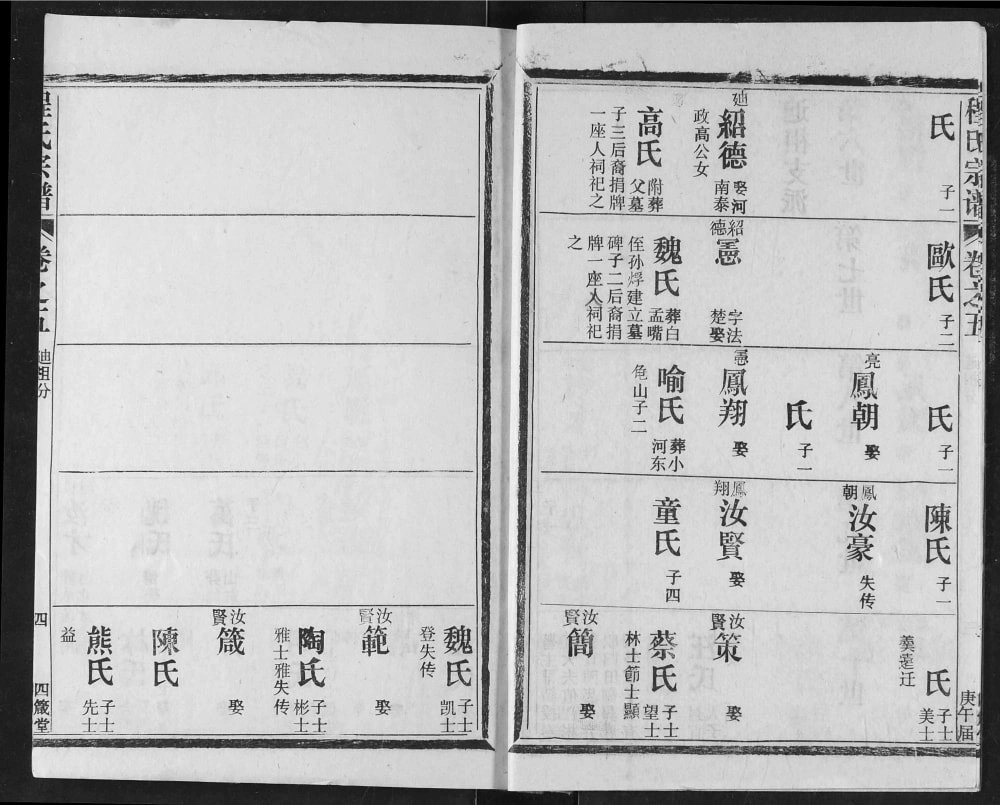 程氏宗谱
卷之五
庚午届
氏
子一
廸
紹德
娶河
南泰
政高公女
高氏
附葬
父墓
子三后裔捐牌
一座人祠祀之
歐氏
子二
紹
德
憲
字法
楚娶
魏氏
葬白
孟嘴
侄孙烰建立墓
碑子二后裔捐
牌一座人祠祀
之
氏
子一
亮
鳳朝
娶
氏
子一
憲
鳳翔
娶
喻氏
葬小
河东
龟山子二
陳氏
子一
鳳
朝
汝豪
失传
鳳
翔
汝賢
娶
童氏
子四
氏
子士
美士
迁
汝
賢
策
娶
蔡氏
子士
望士
林士節士顯
汝
賢
簡
娶
魏氏
子士
凯士
登失传
汝
賢
範
娶
陶氏
子士
彬士
雅士雅失传
汝
賢
箴
娶
陳氏
熊氏
子士
先士
益
程氏宗譜
卷之五
廸祖分
四
四箴堂